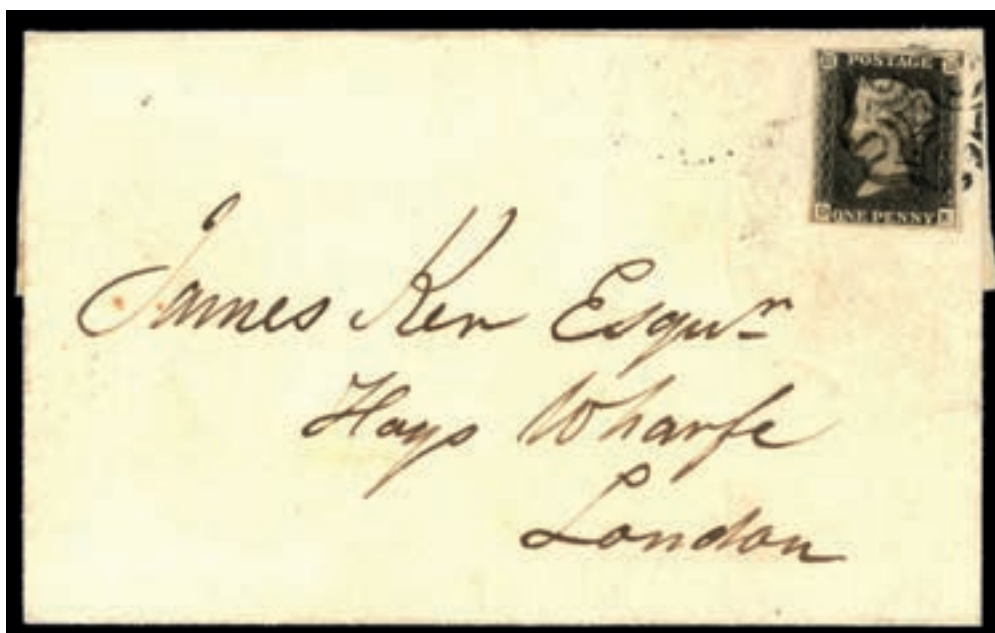 POSTAGE
ONE PENNY
James Ker Esqur
Hays Wharfe
London